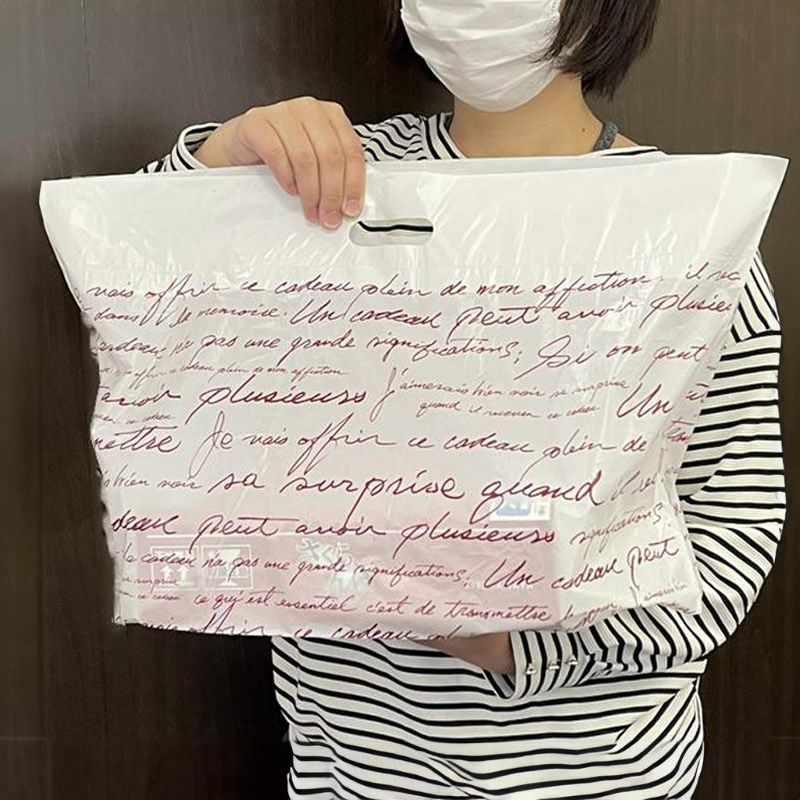 vais offrir ce cadeau plein de mon affection. il
dans le memoire. Un cadeau peut avoir plusieu
cadeau n'a pas une grande significations; Si on peut
offrir ce cadeau plein de mon affection
avoir plusieurs J'aimerais bien voir sa surprise
quand il recevra ce cadeau Un
mettre Je vais offrir ce cadeau plein de
bien voir sa surprise quand il
deau peut avoir plusieurs significations
le cadeau n'a pas une grande significations; Un cadeau peut
surprise
ce cadeau ce qui est essentiel c'est de transmettre
offrir ce cadeau